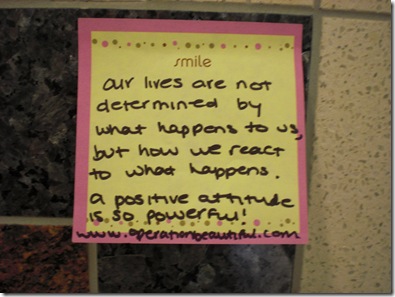 smile
our lives are not
determined by
what happens to us,
but how we react
to what happens.
a positive attitude
is so powerful!
www.operationbeautiful.com